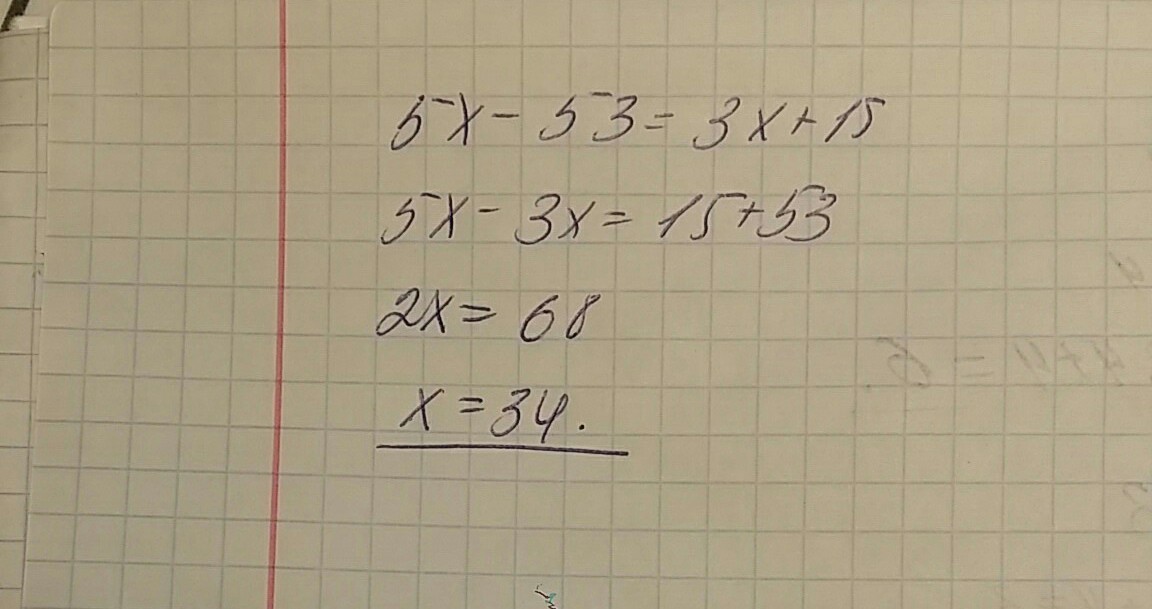 5x - 53 = 3x + 15
5x - 3x = 15 + 53
2x = 68
x = 34.